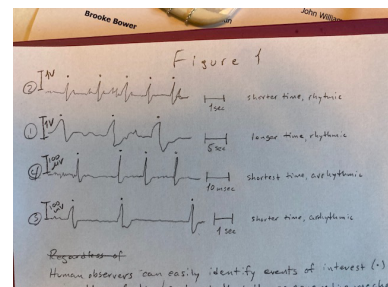 Brooke Bower
John William
Figure 1
② 1V 1sec shorter time, rhythmic
① 1V 5 sec longer time, rhythmic
④ 100 mV 10 msec shortest time, arrhythmic
③ 100 mV 1 sec shorter time, arrhythmic
Regardless of
Human observers can easily identify events of interest (•)